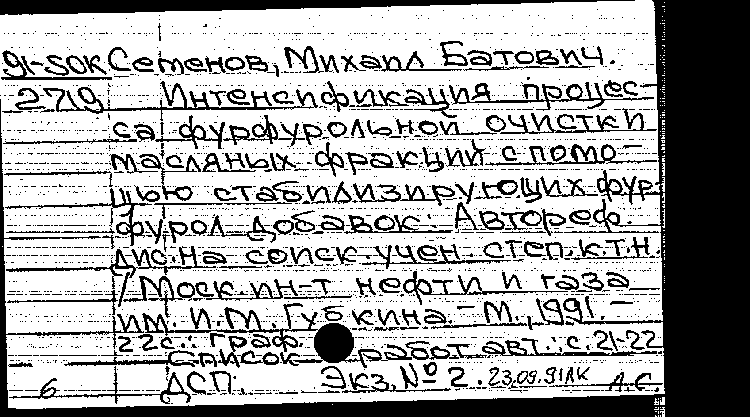 91-50К Семенов, Михаил Батович.
2719 Интенсификация процес-
са фурфурольной очистки
масляных фракций с помо-
щью стабилизирующих фур-
фурол добавок: Автореф.
дис. на соиск. учен. степ. к.т.н.
/ Моск. ин-т нефти и газа
им. И.М. Губкина. - М., 1991. -
22с.: граф.
Список работ авт.: с. 21-22
6 ДСП. Экз. № 2. 23.09.91ЛК А.С.